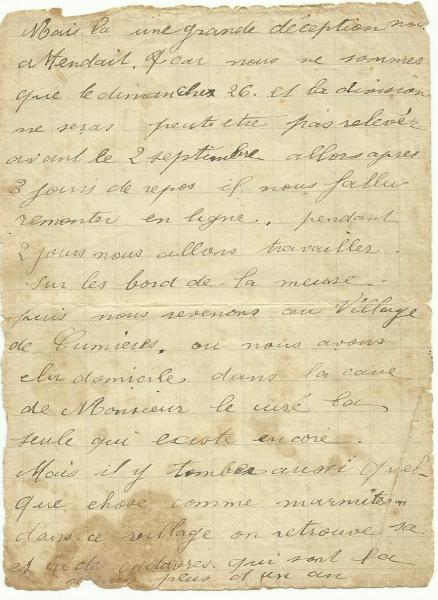 Mais la une grande déception nou
attendait. Car nous ne sommes
que le dimanche 26. et la division
ne seras peutetre pas relevér
avant le 2 septembre allors apres
3 jours de repos il nous fallu
remonter en ligne. pendant
2 jours nous allons travailler
sur les bord de la meuse.
puis nous revenons au Village
de Cumières, ou nous avons
elu domicile dans la cave
de Monsieur le curé la
seule qui existe encore.
Mais il y tombes aussi quel-
que chose comme marmites
dans ce village on retrouve sa
et la de cadavres qui sont la
depuis plus d'un an